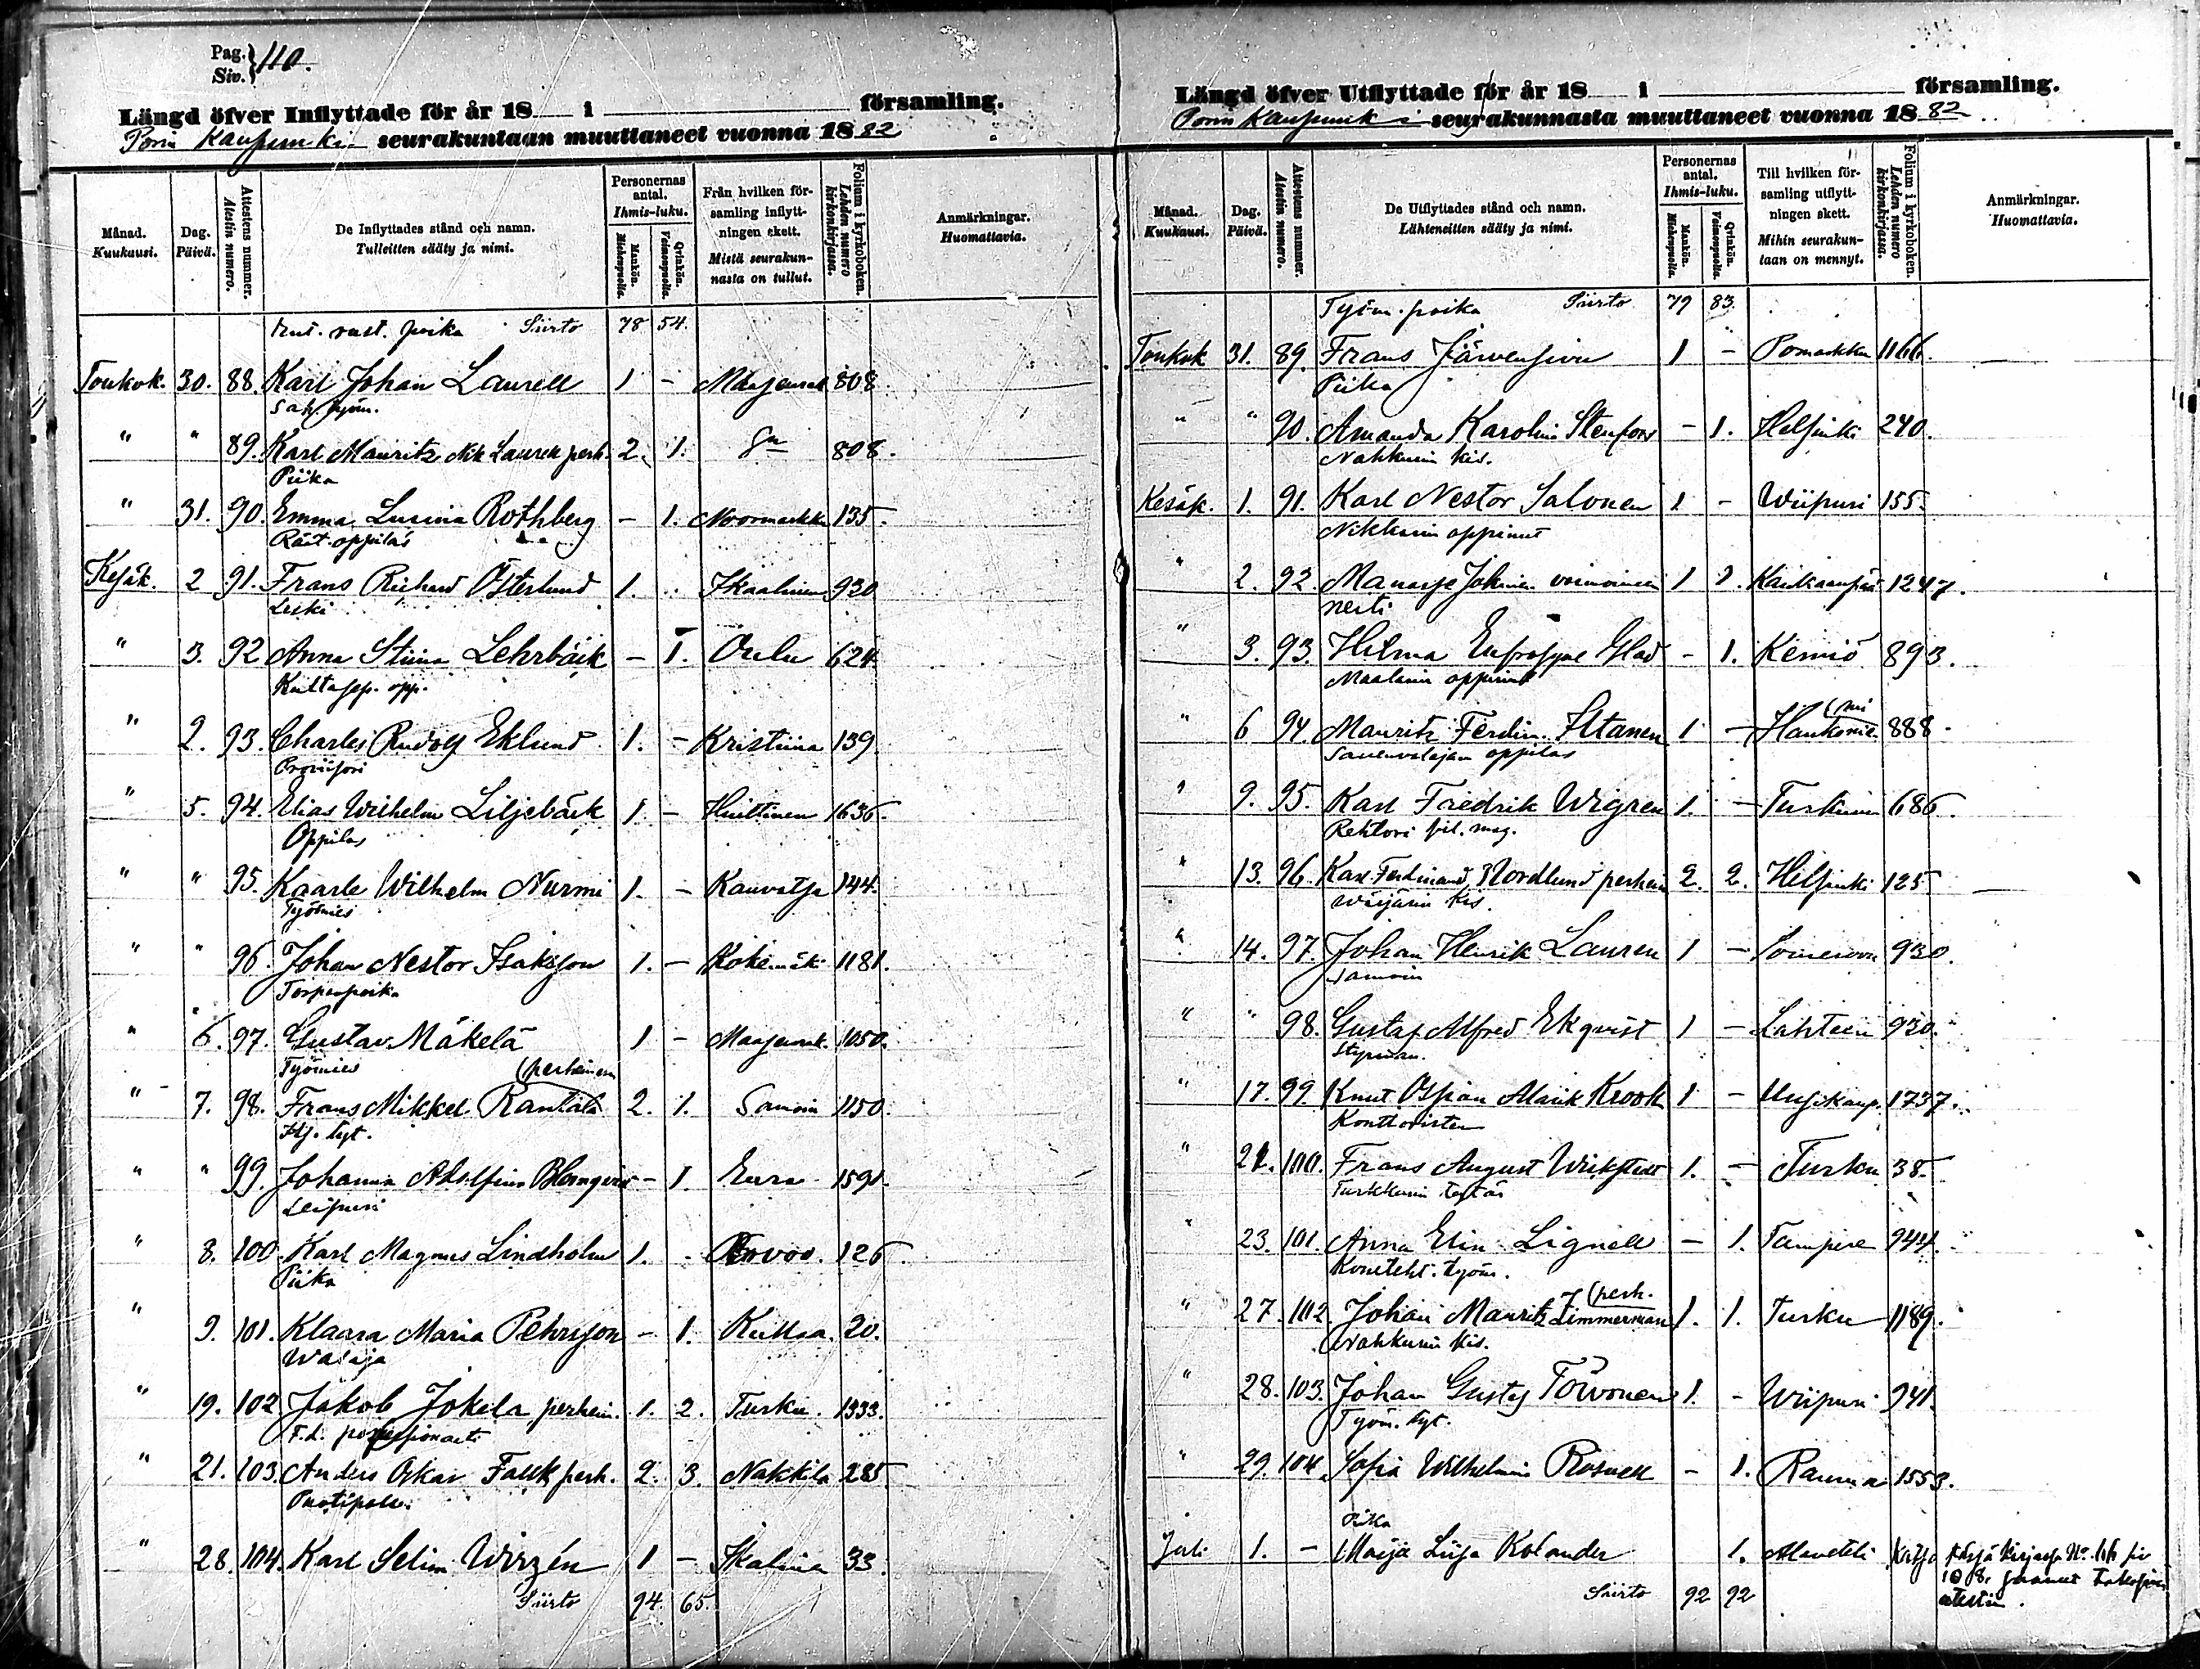 Pag. Siv. 110.
Längd öfver Inflyttade för år 18 i församling.
Porin Kaupunki seurakuntaan muuttaneet vuonna 1882
Månad. Kuukausi.
Dag. Päivä.
Attestens nummer. Atestin numero.
De Inflyttades stånd och namn. Tulleitten sääty ja nimi.
Personernas antal. Ihmis-luku.
Mankön. Miehenpuolta.
Qvinkön. Vaimonpuolta.
Från hvilken församling inflyttningen skett. Mistä seurakunnasta on tullut.
Folium i kyrkoboken. Lehden numero kirkonkirjassa.
Anmärkningar. Huomattavia.
poika Siirto 78 54.
Toukok. 30. 88. Karl Johan Laurell 1 - 808
" " 89. Karl Mauritz Laurell perh. 2. 1. 808.
Piika
" 31. 90. Emma Rothberg - 1. Noormarkku 135.
Räät. oppilas
Kesäk. 2 91. Frans Richard Österlund 1. Ikaalinen 930
Leski
" 3. 92 Anna Stiina Lehrbäck - 1. Oulu 624
Kultasep. opp.
" 2. 93. Charles Rudolf Eklund 1. - Kristiina 139.
Proviisori
" 5. 94. Elias Wilhelm Liljebäck 1. - Huittinen 1636.
Oppilas
" " 95. Kaarle Wilhelm Nurmi 1. - Kauvatsa 144.
Työmies
" " 96. Johan Nestor Isaksson 1. - Kokemäki 1181.
" 6. 97. Gustav Mäkelä 1 - 1050.
Työmies (perheineen
" 7. 98. Frans Mikkel Rantala 2. 1. Samoin 1150.
Itj. tyt.
" " 99. Johanna Adolfina Blomqvist - 1. Eura 1591.
Leipuri
" 8. 100. Karl Magnus Lindholm 1. - Porvoo. 126.
Piika
" 9. 101. Klaara Maria Pehrsson - 1. Kullaa 20.
Walaja
" 19. 102 Jakob Jokela perhein. 1. 2. Turku. 1333.
" 21. 103. Anders Oskar Falck perh. 2. 3. Nakkila 285.
" 28. 104. Karl Selim Wirzén 1 - Ikalinen 33.
Siirto 94. 65.
Längd öfver Utflyttade för år 18 i församling.
Porin Kaupunki seurakunnasta muuttaneet vuonna 1882
Månad. Kuukausi.
Dag. Päivä.
Attestens nummer. Atestin numero.
De Utflyttades stånd och namn. Lähteneitten sääty ja nimi.
Personernas antal. Ihmis-luku.
Mankön. Miehenpuolta.
Qvinkön. Vaimonpuolta.
Till hvilken församling utflyttningen skett. Mihin seurakuntaan on mennyt.
Folium i kyrkoboken. Lehden numero kirkonkirjassa.
Anmärkningar. Huomattavia.
Työm. poika Siirto 79 83.
Toukok 31. 89. Frans Järvensivu 1 - Pomarkku 1166.
Piika
" " 90. Amanda Karolin Stenfors - 1. Helsinki 240.
Nahkurin kis.
Kesäk. 1. 91. Karl Nestor Salonen 1 - Wiipuri 155.
Nikkarin oppinut
" 2. 92. Manasse Johan 1 1. Kankaanpää 1247.
neiti
" 3. 93. Hilma Eufrosyne Glad - 1. Kemiö 893.
Maalarin oppinut
" 6 94. Mauritz Ferdin. Iltanen 1 - (mi Hankonie 888.
Savenvalajan oppilas
" 9. 95. Karl Fredrik Wigren 1. - Turkuun 686.
Rehtori fil. mag.
" 13. 96. Karl Ferdinand Nordlund perhein 2. 2. Helsinki 125.
Värjärin kis.
" 14. 97. Johan Henrik Lauren 1 - 930.
Samoin
" " 98. Gustaf Alfred Ekqvist 1 - 930.
Styrman.
" 17. 99. Knut Krook 1 - Uusikaup. 1737.
Konttoristen
" 21. 100. Frans August Wikstedt 1. - Turku 38.
Turkkurin tytär
" 23. 101. Anna Elin Lignell - 1. Tampere 944.
Koneteht. työm.
" 27. 102. Johan Mauritz Zimmerman (perh. 1. 1. Turku 1189.
Nahkurin kis.
" 28. 103. Johan Gustaf Toivonen 1. - Wiipuri 941.
Työm. tyt.
" 29. 104. Sofia Wilhelmina Rosnell - 1. Rauma 1553.
Piika
Juli 1. - Maija Liisa Kolander 1. Alaveteli Katso
Siirto 92 92